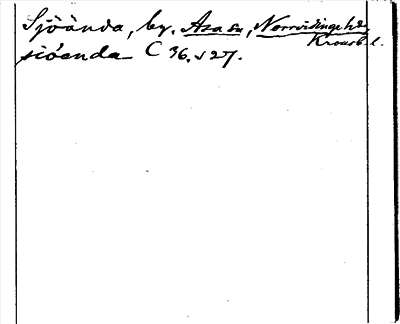 Sjöända, by. Asa sn, Norrvidinge hd,
Kronob. l.
siöenda C 36. s 27.